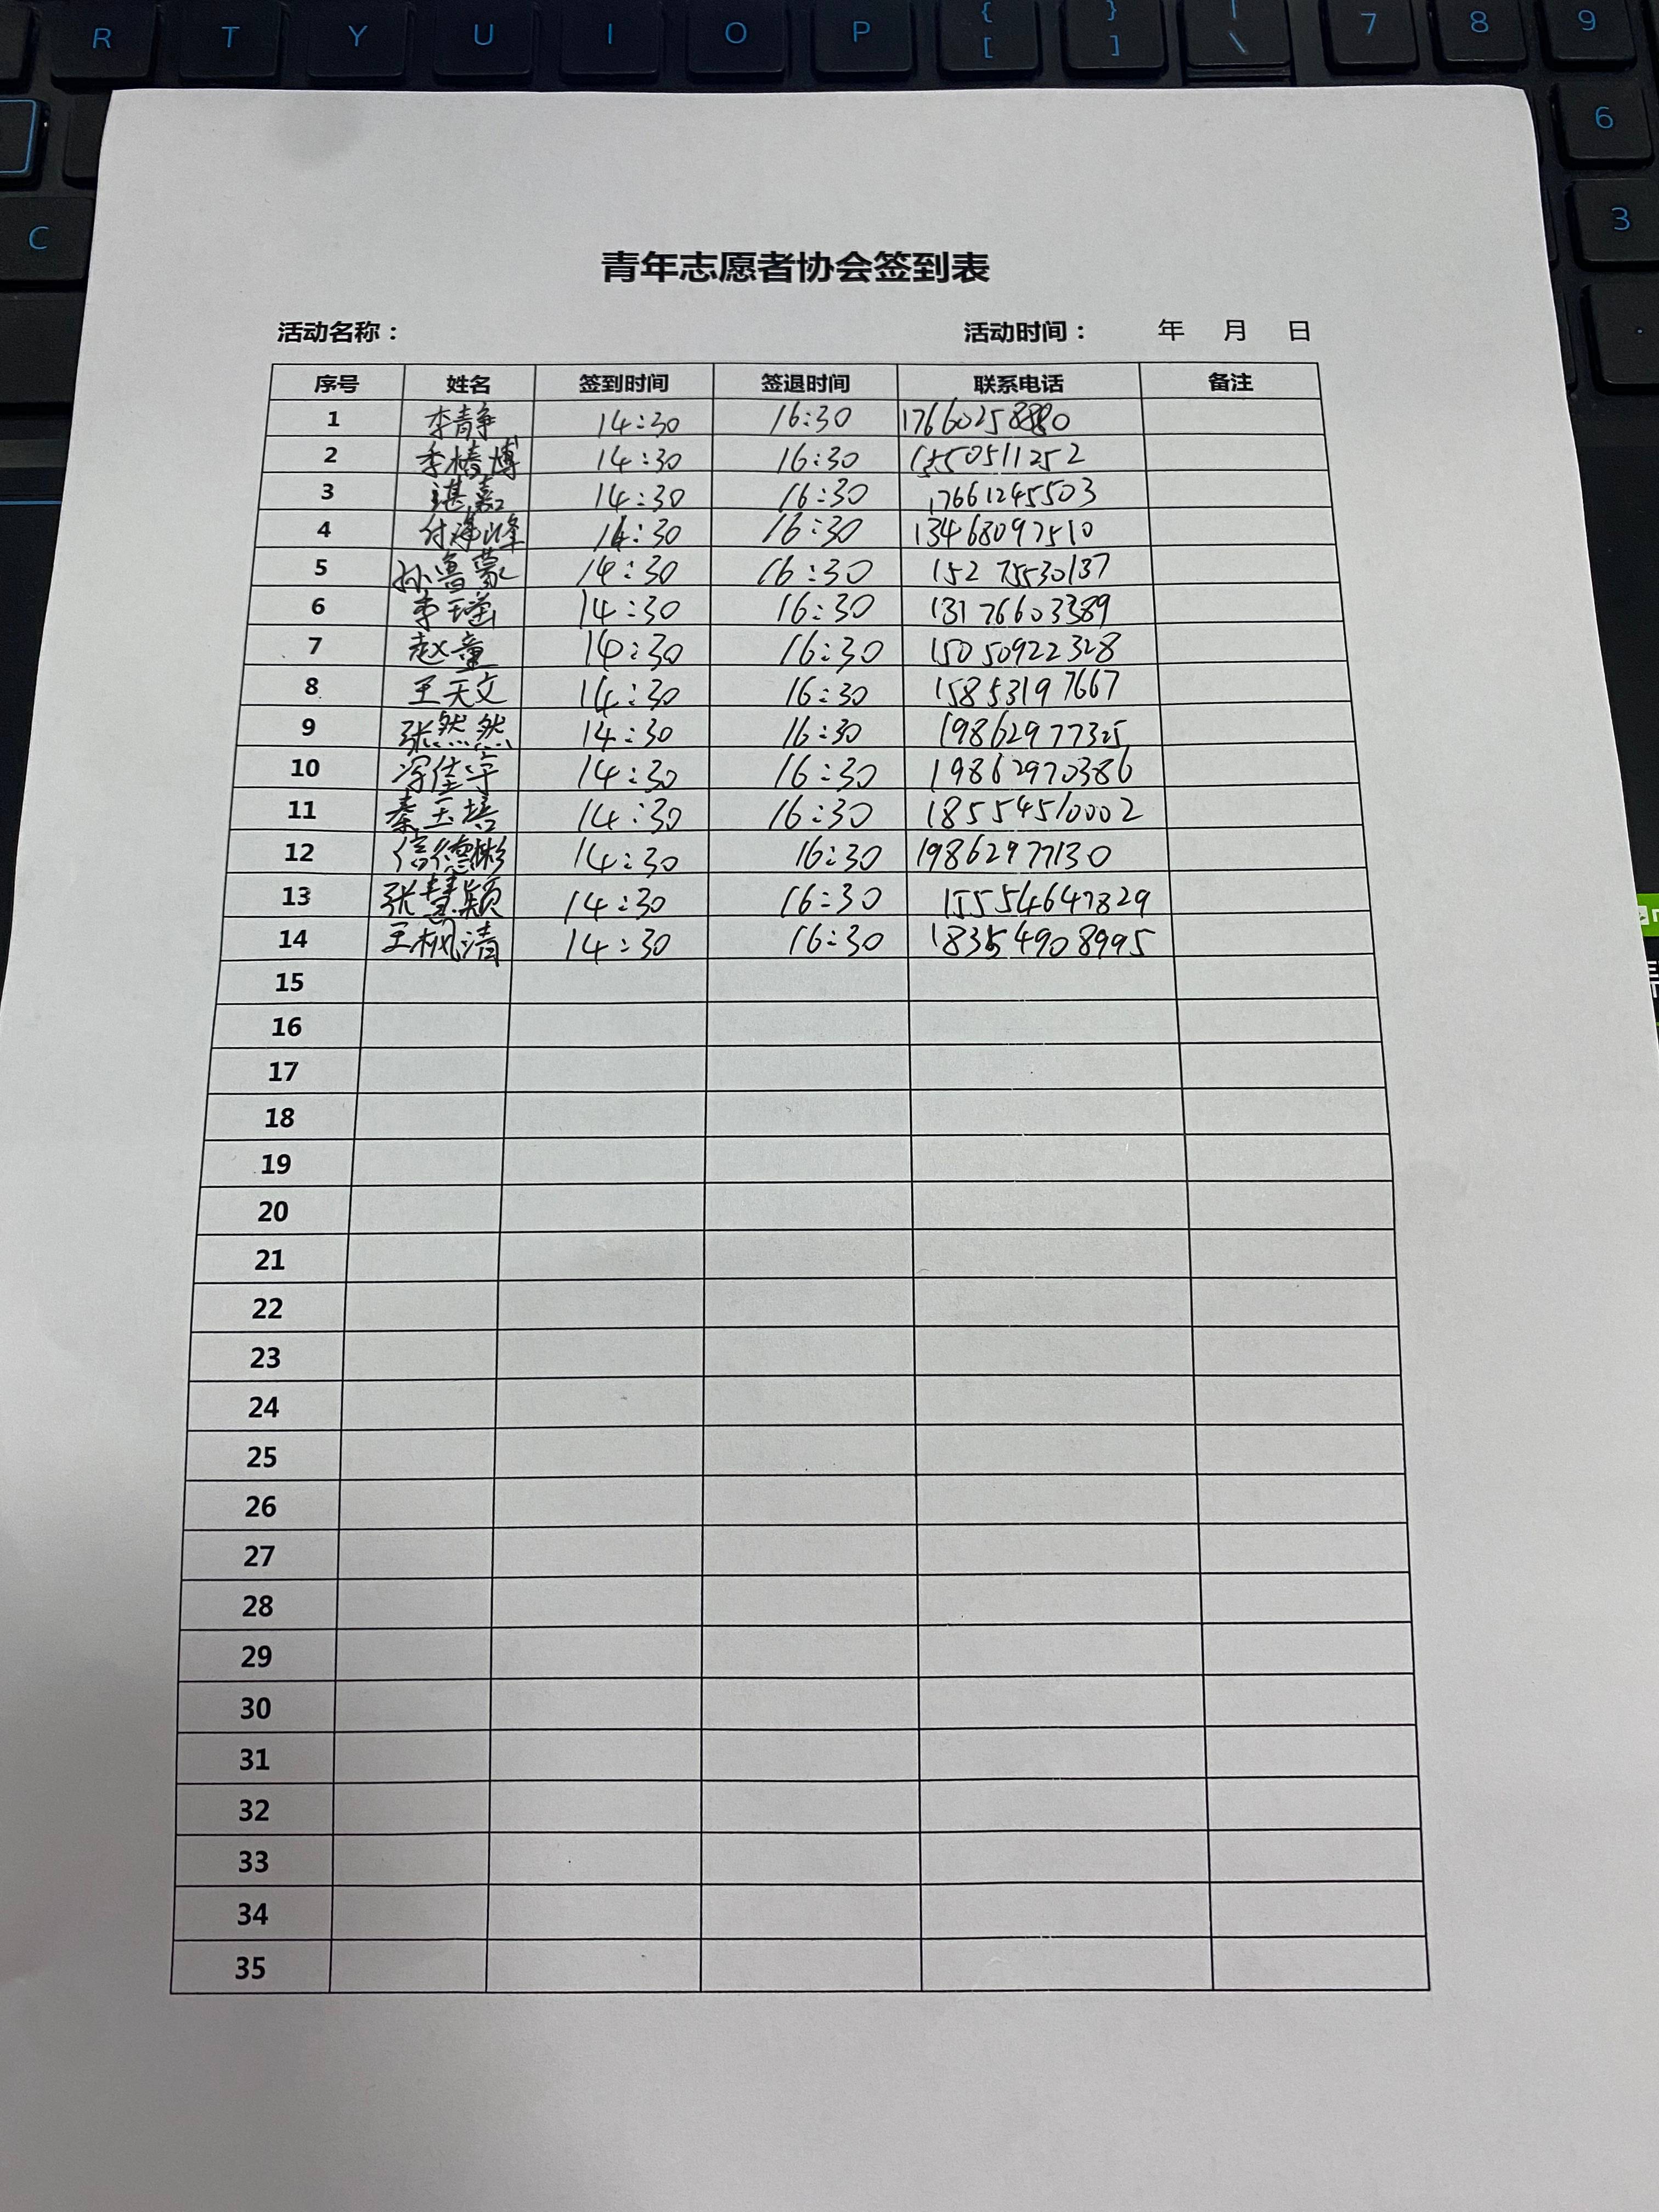 R T Y U I O P { [ } ] | \ 7 8 9
6
C
3
青年志愿者协会签到表
活动名称： 活动时间： 年 月 日
序号 姓名 签到时间 签退时间 联系电话 备注
1 李青静 14:30 16:30
2 季椿博 14:30 16:30 15505111252
3 谌嘉 14:30 16:30 17661245503
4 14:30 16:30 13468097510
5 孙鲁蒙 14:30 16:30 15275530137
6 李瑶 14:30 16:30 13176603389
7 赵童 14:30 16:30 15050922328
8 王天文 14:30 16:30 15853197667
9 张然然 14:30 16:30 19862977325
10 冯佳宇 14:30 16:30 19862970386
11 秦玉培 14:30 16:30 18554510002
12 信德彬 14:30 16:30 19862977130
13 张慧颖 14:30 16:30 15554647829
14 王枫清 14:30 16:30 18354908995
15
16
17
18
19
20
21
22
23
24
25
26
27
28
29
30
31
32
33
34
35